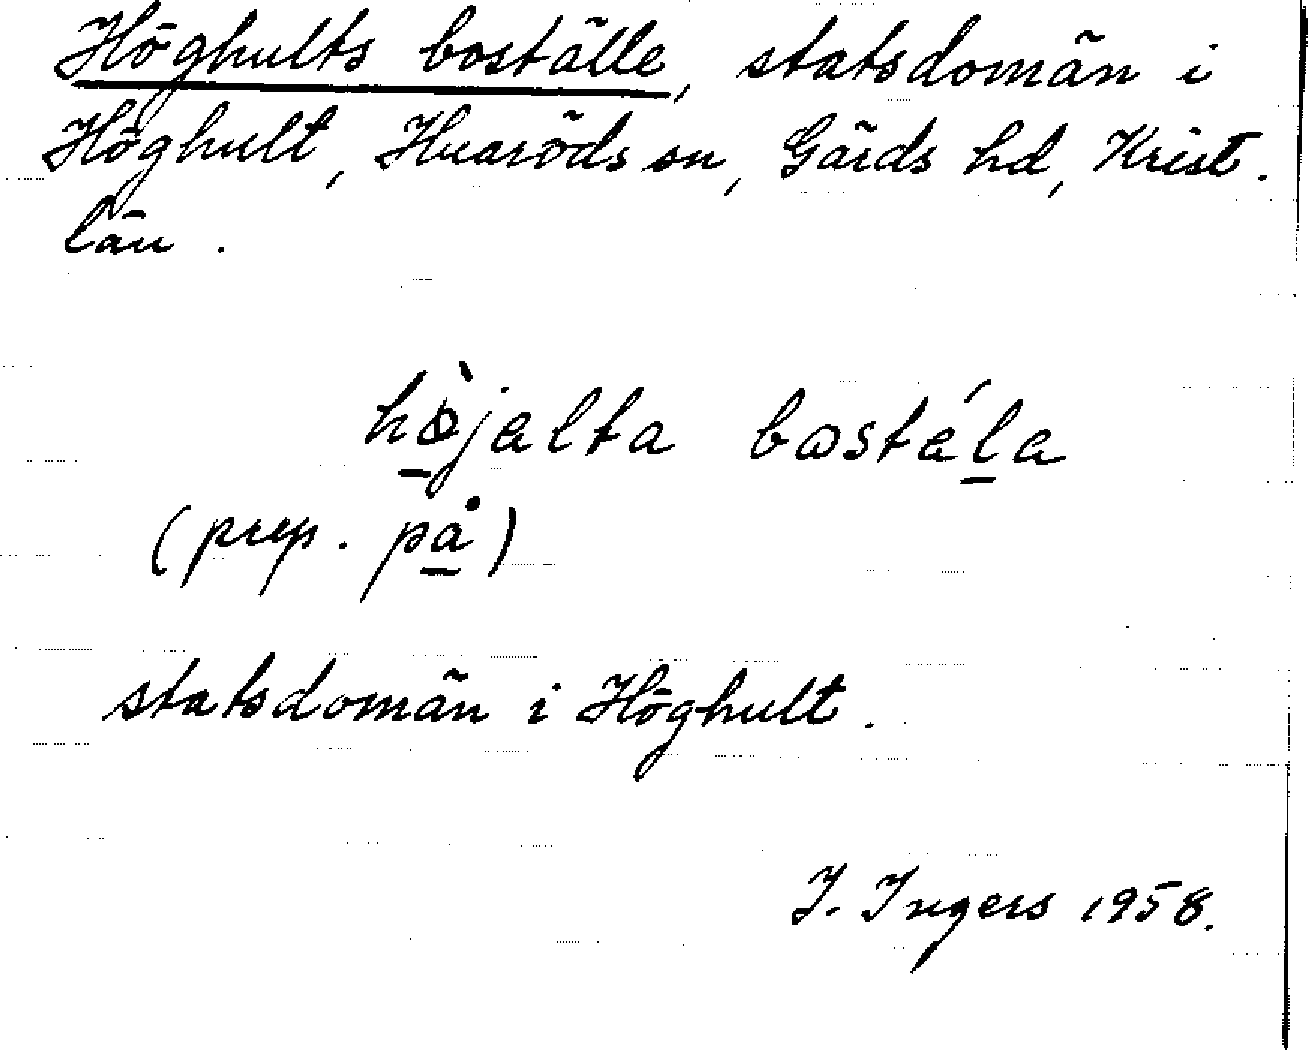 Höghults boställe, statsdomän i
Höghult, Hvaröds sn, Gärds hd, Krist.
län.
hø̀jalta bostála
(prep. på)
statsdomän i Höghult.
I. Ingers 1958.